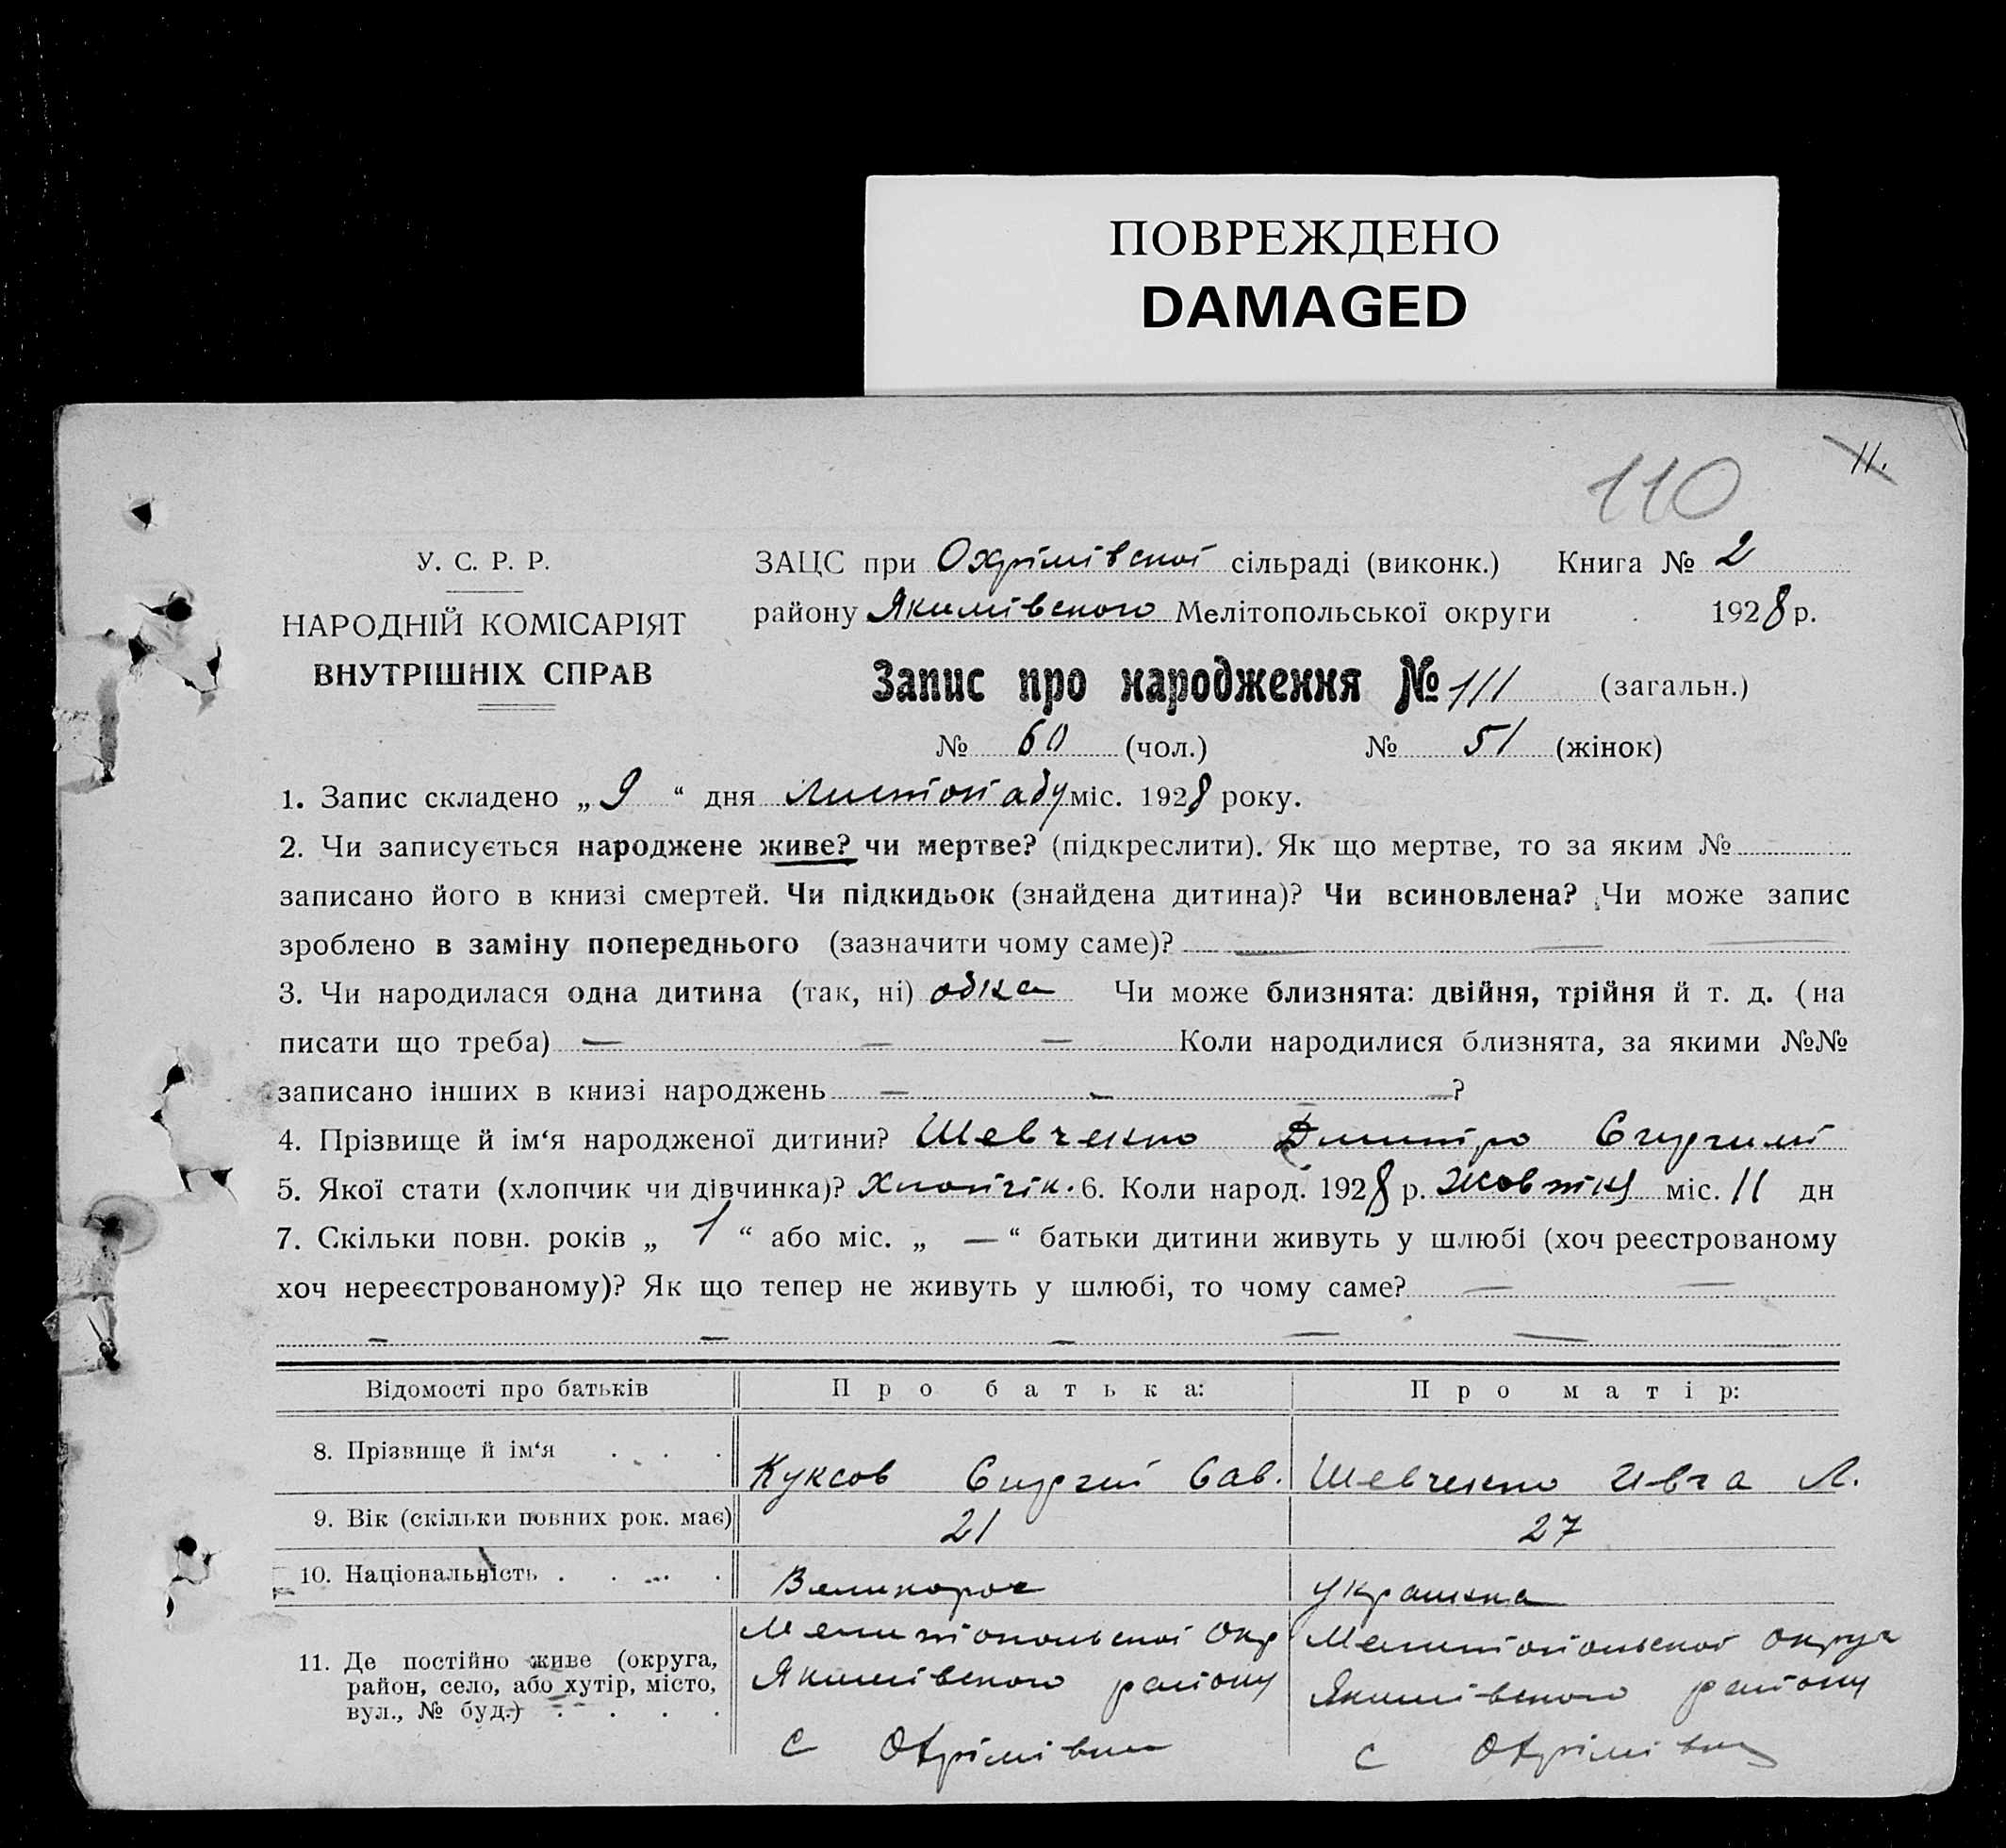 ПОВРЕЖДЕНО
DAMAGED
110
11.
У. С. Р. Р.
НАРОДНІЙ КОМІСАРІЯТ
ВНУТРІШНІХ СПРАВ
ЗАЦС при Охрімівскої сільраді (виконк.) Книга № 2
району Якимівского Мелітопольської округи 1928 р.
Запис про народження № 111 (загальн.)
№ 60 (чол.) № 51 (жінок)
1. Запис складено „ 9 “ дня листопаду міс. 1928 року.
2. Чи записується народжене живе? чи мертве? (підкреслити). Як що мертве, то за яким №
записано його в книзі смертей. Чи підкидьок (знайдена дитина)? Чи всиновлена? Чи може запис
зроблено в заміну попереднього (зазначити чому саме)? —
3. Чи народилася одна дитина (так, ні) одна Чи може близнята: двійня, трійня й т. д. (на
писати що треба) — — — Коли народилися близнята, за якими №№
записано інших в книзі народжень — — — ?
4. Прізвище й ім‘я народженої дитини? Шевченко Дмитро
5. Якої стати (хлопчик чи дівчинка)? Хлопчік. 6. Коли народ. 1928 р. Жовтня міс. 11 дн
7. Скільки повн. років „ 1 “ або міс. „ — “ батьки дитини живуть у шлюбі (хоч реєстрованому
хоч нереєстрованому)? Як що тепер не живуть у шлюбі, то чому саме? — —
— — — — —
Відомості про батьків Про батька: Про матір:
8. Прізвище й ім‘я . . . Куксов Сиргій Сав. Шевченко Ивга Л.
9. Вік (скільки повних рок. має) 21 27
10. Національність . . . . Великорос Українка
11. Де постійно живе (округа, Мелитопольскої Окр Мелитопольскої округи
район, село, або хутір, місто, Якимівского району Якимівского району
вул., № буд.) . . . . с Охрімівка с Охрімівка